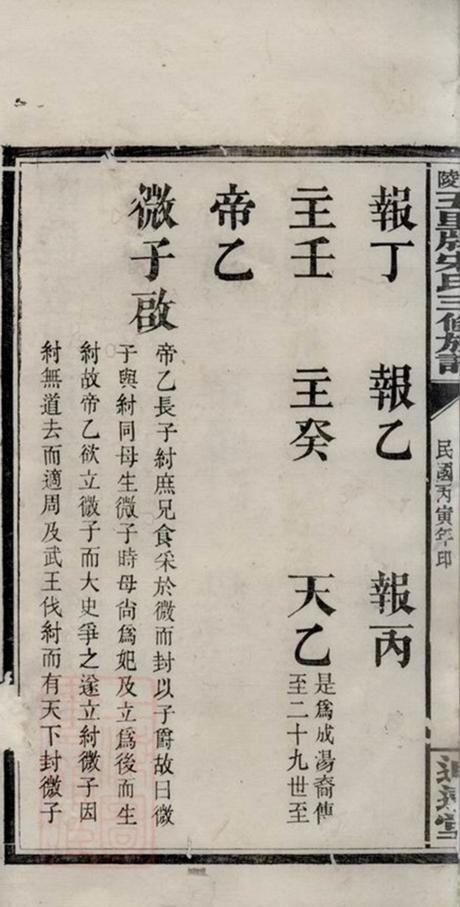 陵五里牌宋氏三修族譜
民國丙寅年印
報丁 報乙 報丙
主壬 主癸 天乙
是爲成湯裔傳
至二十九世至
帝乙
微子啟
帝乙長子紂庶兄食采於微而封以子爵故曰微
子與紂同母生微子時母尚爲妃及立爲後而生
紂故帝乙欲立微子而大史爭之遂立紂微子因
紂無道去而適周及武王伐紂而有天下封微子